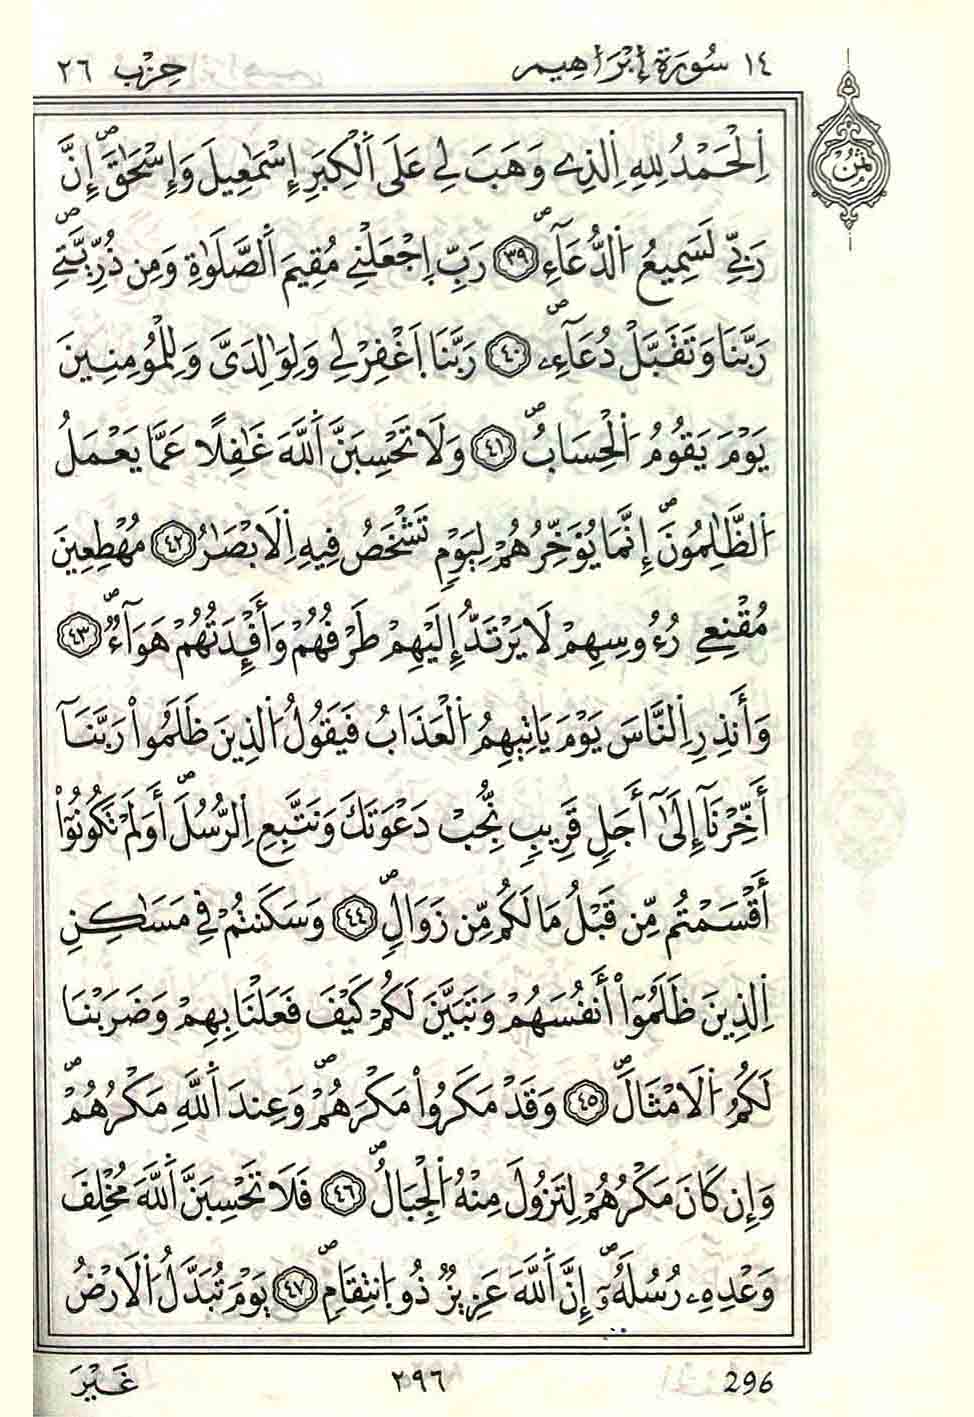 ١٤ سُورَةُ إِبْرَاهِيم حِزْب ٢٦
ثُمُن
اَ۬لْحَمْدُ لِلهِ اِ۬لذِے وَهَبَ لِے عَلَي اَ۬لْكِبَرِ إِسْمَٰعِيلَ وَإِسْحَٰقَۖ إِنَّ
رَبِّے لَسَمِيعُ اُ۬لدُّعَآءِۖ ٣٩ رَبِّ اِ۪جْعَلْنِے مُقِيمَ اَ۬لصَّلَوٰةِ وَمِن ذُرِّيَّتِےۖ
رَبَّنَا وَتَقَبَّلْ دُعَآءِۦۖ ٤٠ رَبَّنَا اَ۪غْفِرْ لِے وَلِوَٰلِدَيَّ وَلِلْمُومِنِينَ
يَوْمَ يَقُومُ اُ۬لْحِسَابُۖ ٤١ وَلَا تَحْسِبَنَّ اَ۬للَّهَ غَٰفِلاً عَمَّا يَعْمَلُ
اُ۬لظَّٰلِمُونَۖ إِنَّمَا يُؤَخِّرُهُمْ لِيَوْمٖ تَشْخَصُ فِيهِ اِ۬لَابْصَٰرُ ٤٢ مُهْطِعِينَ
مُقْنِعِے رُءُوسِهِمْ لَا يَرْتَدُّ إِلَيْهِمْ طَرْفُهُمْ وَأَفْـِٕدَتُهُمْ هَوَآءٞۖ ٤٣
وَأَنذِرِ اِ۬لنَّاسَ يَوْمَ يَاتِيهِمُ اُ۬لْعَذَابُ فَيَقُولُ اُ۬لذِينَ ظَلَمُواْ رَبَّنَآ
أَخِّرْنَآ إِلَيٰٓ أَجَلٖ قَرِيبٖ نُّجِبْ دَعْوَتَكَ وَنَتَّبِعِ اِ۬لرُّسُلَۖ أَوَلَمْ تَكُونُوٓاْ
أَقْسَمْتُم مِّن قَبْلُ مَا لَكُم مِّن زَوَالٖۖ ٤٤ وَسَكَنتُمْ فِے مَسَٰكِنِ
اِ۬لذِينَ ظَلَمُوٓاْ أَنفُسَهُمْ وَتَبَيَّنَ لَكُمْ كَيْفَ فَعَلْنَا بِهِمْ وَضَرَبْنَا
لَكُمُ اُ۬لَامْثَالَۖ ٤٥ وَقَدْ مَكَرُواْ مَكْرَهُمْۖ وَعِندَ اَ۬للَّهِ مَكْرُهُمْۖ
وَإِن كَانَ مَكْرُهُمْ لِتَزُولَ مِنْهُ اُ۬لْجِبَالُۖ ٤٦ فَلَا تَحْسِبَنَّ اَ۬للَّهَ مُخْلِفَ
وَعْدِهِۦ رُسُلَهُۥٓۖ إِنَّ اَ۬للَّهَ عَزِيزٞ ذُو اُ۪نتِقَامٖۖ ٤٧ يَوْمَ تُبَدَّلُ اُ۬لَارْضُ
غَيْرَ ٢٩٦ 296